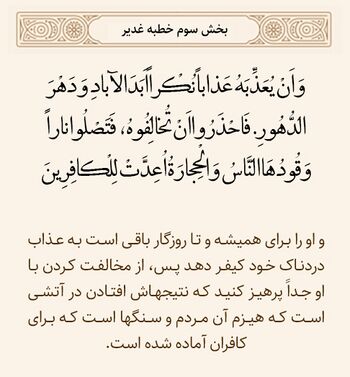 بخش سوم خطبه غدیر
وَاَنْ يُعَذِّبَهُ عَذاباً نُكْراً اَبَدَ الآبادِ وَ دَهْرَ
الدُّهورِ. فَاحْذَرُوا اَنْ تُخالِفُوهُ، فَتَصْلُوا ناراً
وَقُودُهَا النَّاسُ وَ الْحِجارَةُ اُعِدَّتْ لِلْكافِرينَ
و او را برای همیشه و تا روزگار باقی است به عذاب
دردناک خود کیفر دهد پس، از مخالفت کردن با
او جداً پرهیز کنید که نتیجهاش افتادن در آتشی
است که هیزم آن مردم و سنگها است که برای
کافران آماده شده است.